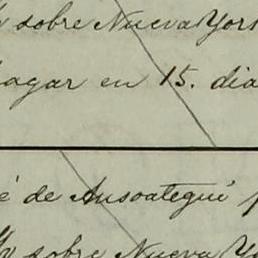 sobre Nueva York
pagar en 15. dia
é de Ansoategui p
sobre Nueva Yo